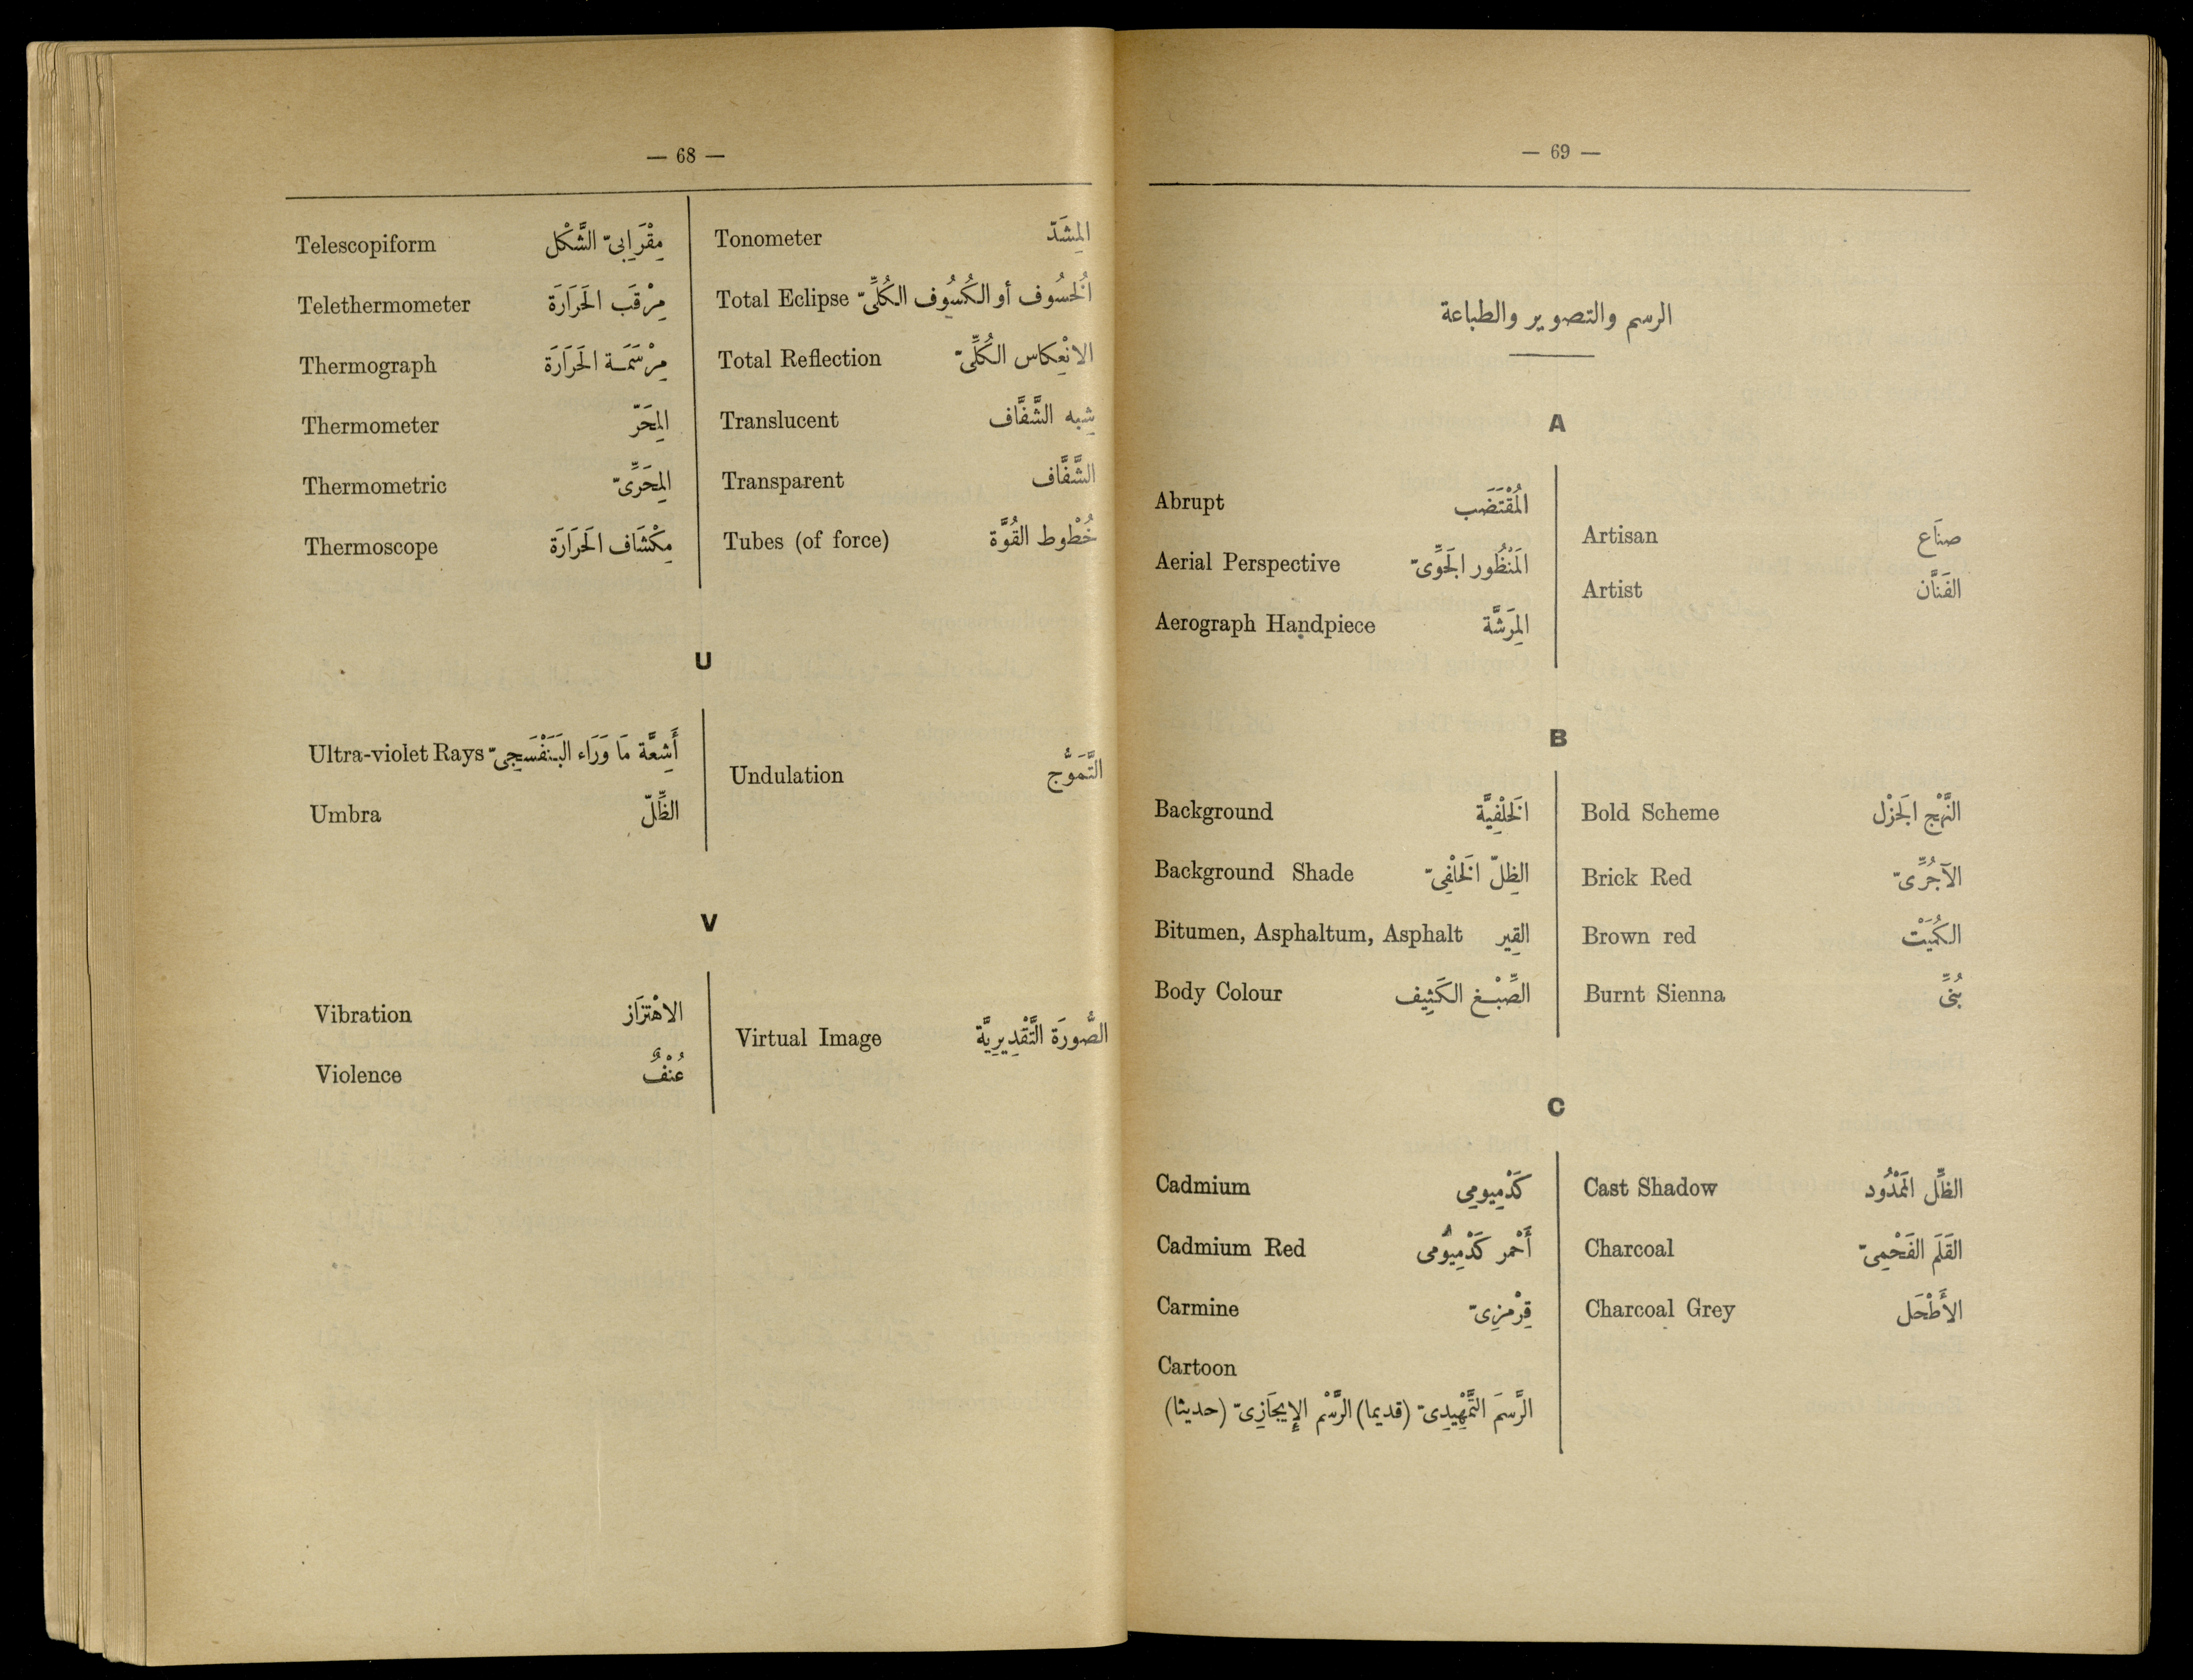 — 68 —
Telescopiform مِقْرَابِىّ الشَّكْل
Telethermometer مِرْقَب الحَرَارَة
Thermograph مِرْسَمَة الحَرَارَة
Thermometer المِحَرّ
Thermometric المِحَرِّىّ
Thermoscope مِكْشَاف الحَرَارَة
Tonometer المِشَدّ
Total Eclipse الخُسُوف أو الكُسُوف الكُلِّىّ
Total Reflection الانْعِكاس الكُلِّىّ
Translucent شِبه الشَّفَّاف
Transparent الشَّفَّاف
Tubes (of force) خُطُوط القُوَّة
U
Ultra-violet Rays أَشِعَّة مَا وَرَاء البَنَفْسَجِىّ
Umbra الظِّلّ
Undulation التَّمَوُّج
V
Vibration الاهْتِزَاز
Violence عُنْفٌ
Virtual Image الصُّورَة التَّقْدِيرِيَّة
— 69 —
الرسم والتصوير والطباعة
A
Abrupt المُقْتَضَب
Aerial Perspective المَنْظُور الجَوِّىّ
Aerograph Handpiece المِرَشَّة
Artisan صنَاع
Artist الفَنَّان
B
Background الخَلْفِيَّة
Background Shade الظِلّ الخَلْفِىّ
Bitumen, Asphaltum, Asphalt القِير
Body Colour الصِّبْغ الكَثِيف
Bold Scheme النَّهْج الجَزْل
Brick Red الآجُرِّىّ
Brown red الكُمَيْت
Burnt Sienna بُنِّى
C
Cadmium كَدْمِيومِى
Cadmium Red أَحْمر كَدْمِيُومى
Carmine قِرْمزِىّ
Cartoon
الرَّسمَ التَّمْهِيدِىّ (قديما) الرَّسْم الإِيجَازِىّ (حديثا)
Cast Shadow الظِّل المَمْدُود
Charcoal القَلَم الفَحْمِىّ
Charcoal Grey الأَطْحَل